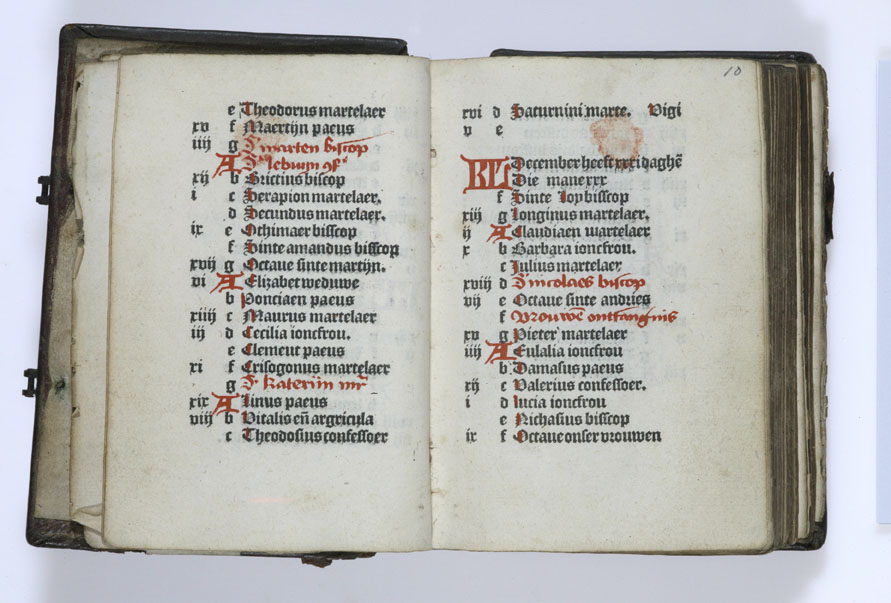 e Theodorus martelaer
xv f Maertijn paeus
iiij g S' marten biscop
A S' lebuijn cf'
xij b Brictius biscop
i c Serapion martelaer.
d Secundus martelaer.
ix e Othimaer bisscop
f Sinte amandus bisscop
xvij g Octaue sinte martijn.
vi A Elizabet weduwe
b Ponciaen paeus
xiiij c Maurus martelaer
iij d Cecilia ioncfrou.
e Clement paeus
xi f Crisogonus martelaer
g S' katerijn mr̄
xix A Linus paeus
viij b Vitalis eñ argricula
c Theodosius confessoer
10
xvi d Saturnini marte. Vigi
v e
KL December heeft xxxi daghē
Die mane xxx
f Sinte Loy bisscop
xiij g Longinus martelaer.
ij A Claudiaen martelaer
x b Barbara ioncfrou.
c Julius martelaer
xviij d S' nicolaes biscop
vij e Octaue sinte andries
f Vrouwē ontfangnis
xv g Pieter martelaer
iiij A Eulalia ioncfrou
b Damasus paeus
xij c Valerius confessoer.
i d Lucia ioncfrou
e Nichasius bisscop
ix f Octaue onser vrouwen